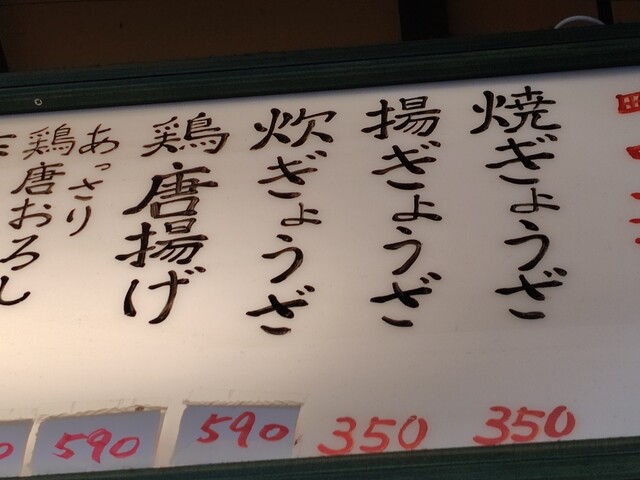 焼ぎょうざ
350
揚ぎょうざ
350
炊ぎょうざ
590
鶏唐揚げ
590
あっさり
鶏唐おろし